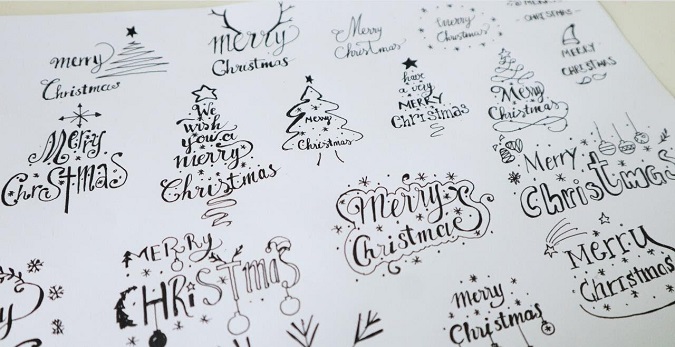 merry
Christmas
merry
Christmas
Merry
Christmas
Merry
Christmas
CHRISTMAS
MERRY
CHRISTMAS
Merry
Christmas
We
wish
you a
merry
Christmas
Merry
Christmas
have
a very
MERRY
Christmas
Merry
Christmas
Merry
Christmas
Merry
Christmas
MERRY
CHRisTmas
Merry
Christmas
Merry
Christmas